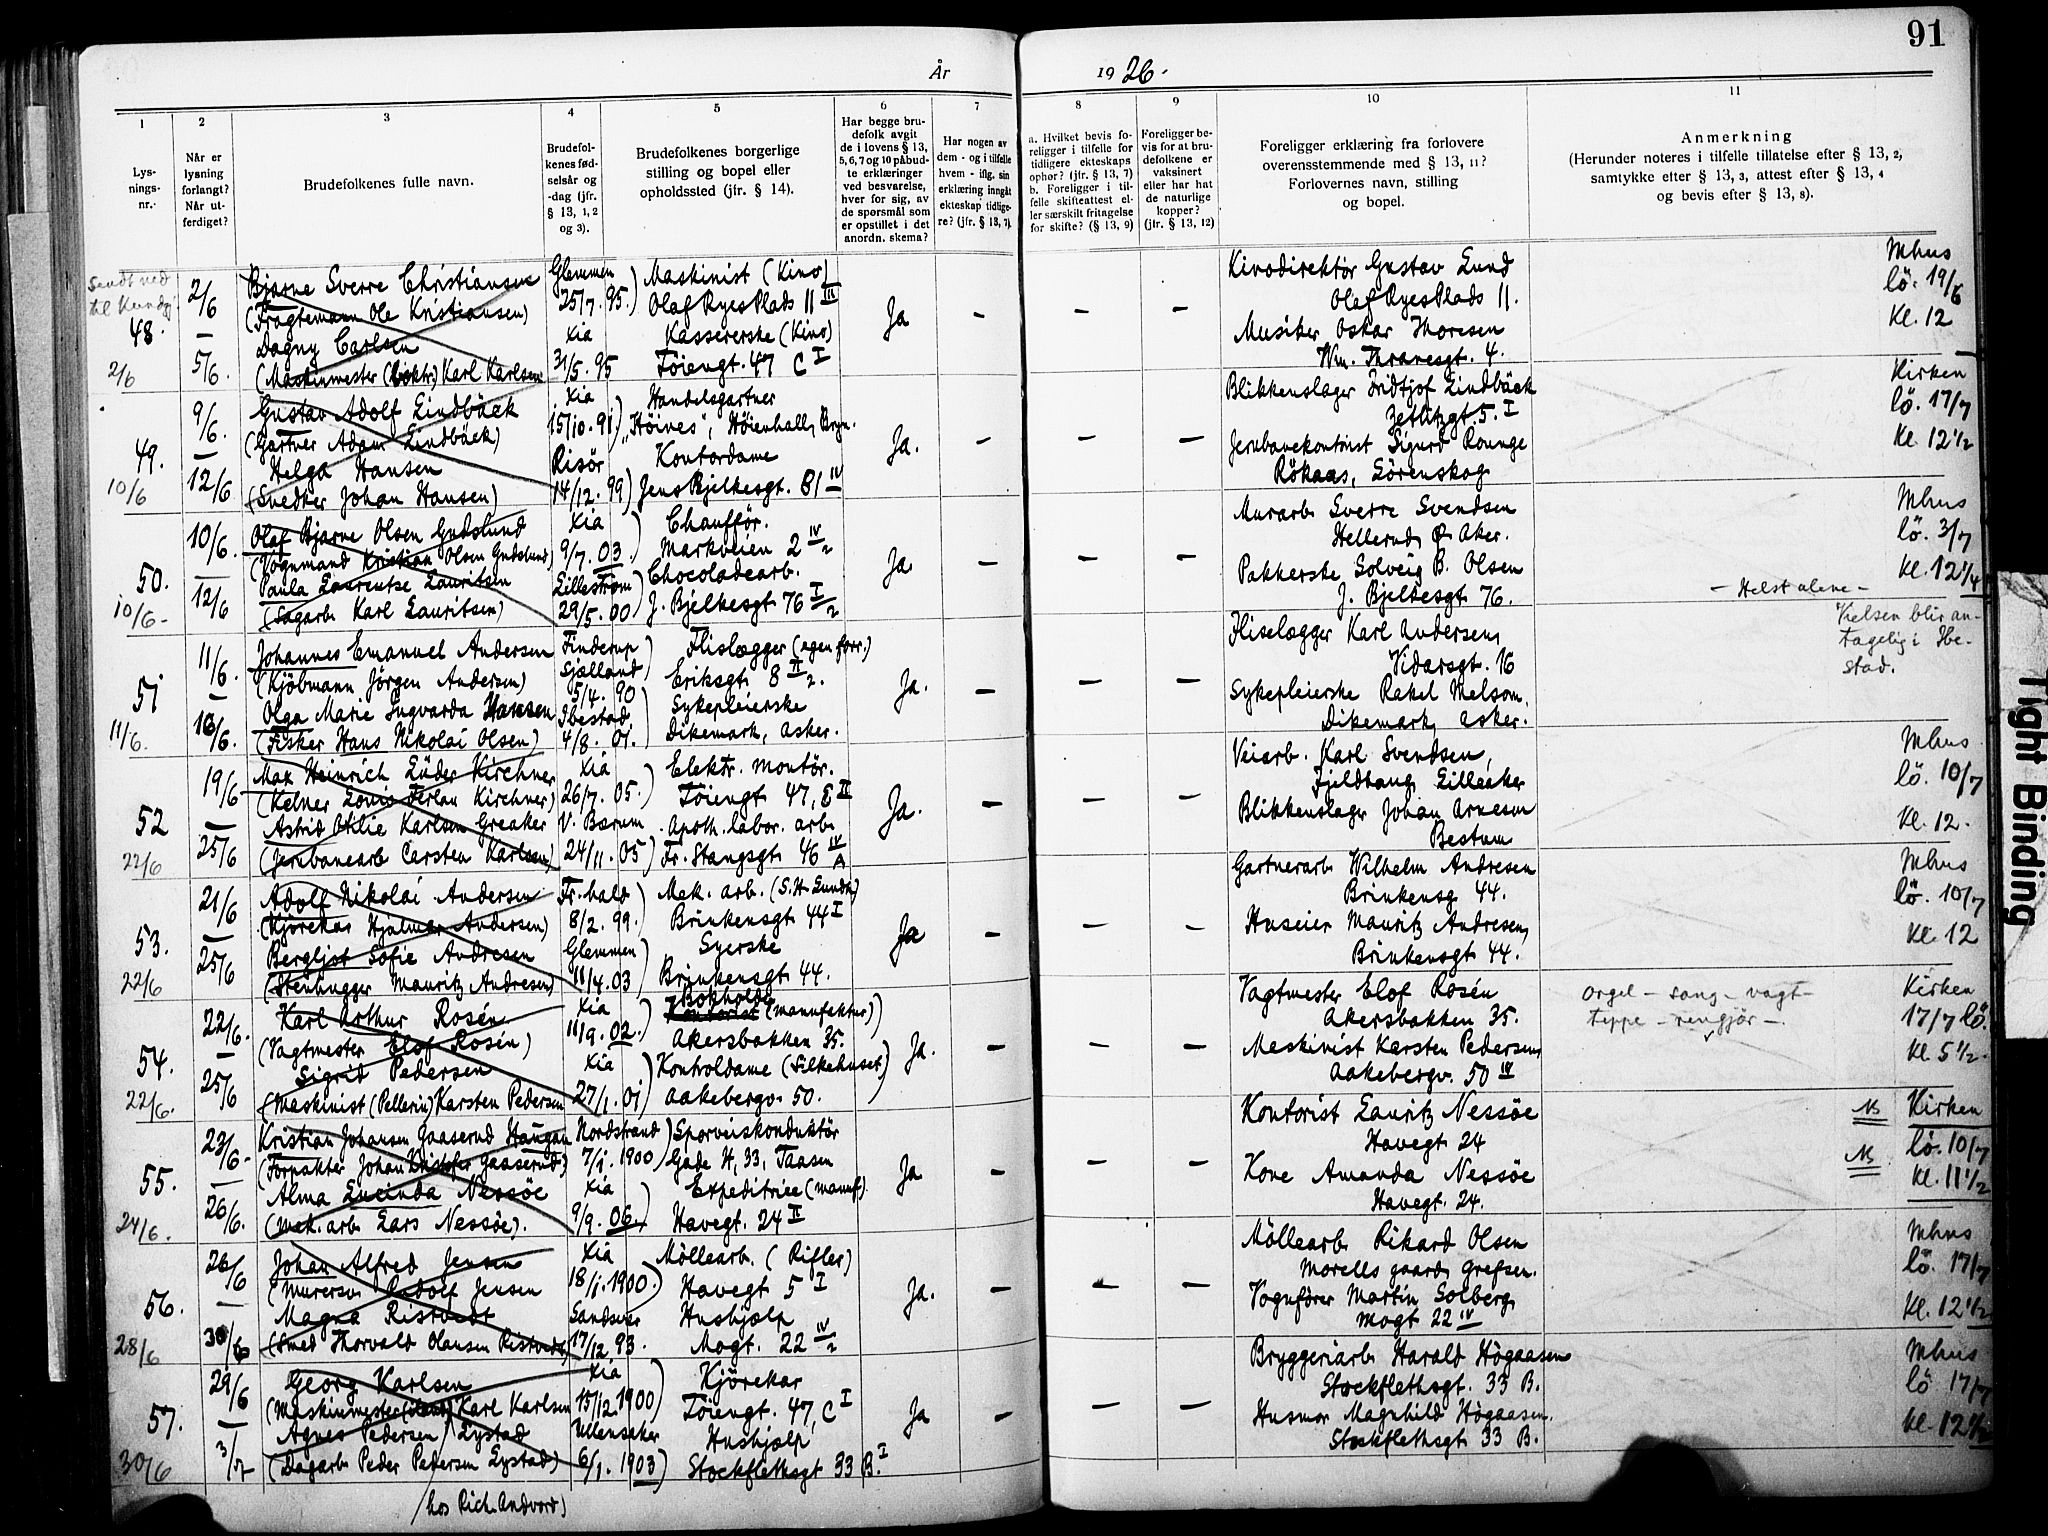 91
År
19 26.
1
2
3
4
5
6
7
8
9
10
11
Lys-
nings-
nr.
Når er
lysning
forlangt?
Når ut-
ferdiget?
Brudefolkenes fulle navn.
Brudefol-
kenes fød-
selsår og
-dag (jfr.
§ 13, 1, 2
og 3).
Brudefolkenes borgerlige
stilling og bopel eller
opholdssted (jfr. § 14).
Har begge bru-
defolk avgit
de i lovens § 13,
5, 6, 7 og 10 påbud-
te erklæringer
ved besvarelse,
hver for sig, av
de spørsmål som
er opstillet i det
anordn. skema?
Har nogen av
dem - og i tilfelle
hvem - iflg. sin
erklæring inngått
ekteskap tidlige-
re? (jfr. § 13, 7).
a. Hvilket bevis fo-
religger i tilfelle for
tidligere ekteskaps
ophør? (jfr. § 13, 7)
b. Foreligger i til-
felle skifteattest el-
ler særskilt fritagelse
for skifte? (§ 13, 9)
Foreligger be-
vis for at bru-
defolkene er
vaksinert
eller har hat
de naturlige
kopper?
(jfr. § 13, 12)
Foreligger erklæring fra forlovere
overensstemmende med § 13, 11?
Forlovernes navn, stilling
og bopel.
Anmerkning
(Herunder noteres i tilfelle tillatelse efter § 13, 2,
samtykke efter § 13, 3, attest efter § 13, 4
og bevis efter § 13, 8).
Sendt ned
til Kundgj.
48.
2/6
2/6
—
5/6.
Bjarne Sverre Christiansen
(Fragtemann Ole Kristiansen)
Dagny Carlsen
(Maskinmester (Elektr.) Karl Karlsen
Glemmen
25/7. 95.)
Kia
31/5. 95
Maskinist (Kino)
Olaf Ryes Plads 11 III
Kassererske (Kino)
Töiengt. 47 C I
Ja
—
—
—
Kinodirektör Gustav Lund
Olaf Ryes Plads 11.
Musiker Oskar Thoresen
Wm. Thranesgt. 4.
Mhus
lö. 19/6
Kl. 12
49.
10/6
9/6.
—
12/6
Gustav Adolf Lindbäck
(Gartner Adam Lindbäck)
Helga Hansen
(Snedker Johan Hansen)
Kia
15/10. 91)
Risör
14/12. 99)
Handelsgartner
"Höines", Höienhall, Bryn.
Kontordame
Jens Bjelkesgt. 81 IV
Ja.
—
—
—
Blikkenslager Fridtjof Lindbäck
Zetlitzgt. 5. I
Jernbanekontorist Sigurd Rounge
Rökaas, Lörenskog
Kirken
lö. 17/7
Kl. 12 1/2
50.
10/6-
10/6.
—
12/6
Olaf Bjarne Olsen Gudslund
(Vognmand Kristian Olsen Gudslund)
Paula Laurentse Lauritsen
(Sagarb. Karl Lauritsen)
Kia
9/7. 03.)
Lilleström
29/5. 00)
Chaufför.
Markveien 2 IV/2
Chocoladearb.
J. Bjelkesgt 76 I/2
Ja.
—
—
—
Murarb. Sverre Svendsen
Hellerud, Ø. Aker.
Pakkerske Solveig B. Olsen
J. Bjelkesgt 76.
Mhus
lö. 3/7
Kl. 12 1/4
51
11/6.
11/6.
—
16/6.
Johannes Emanuel Andersen
(Kjöbmann Jörgen Andersen)
Olga Marie Ingvarda Hansen
(Fisker Hans Nikolai Olsen)
Finderup
Sjælland
5/4. 90
Ibestad.
4/8. 01.
Flislægger (egen forr.)
Eriksgt. 8 II/2.
Sykepleierske
Dikemark, Asker.
Ja.
—
—
—
Fliselægger Karl Andersen,
Vidarsgt. 16
Sykepleierske Rakel Melsom.
Dikemark, Asker.
— Helst alene —
Vielsen blir an-
tagelig i Ibe-
stad.
52
22/6
19/6
—
25/6
Max Heinrich Lüder Kirchner
(Kelner Louis Ferlan Kirchner)
Astrid Otilie Karlsen Greaker
(Jernbanearb. Carsten Karlsen)
Kia
26/7. 05.)
V. Bærum
24/11. 05)
Elektr. montör.
Töiengt 47, E II
Apoth. labor. arb.
Fr. Stangsgt. 46 IV A
Ja.
—
—
—
Veiarb. Karl Svendsen,
Fjeldhaug, Lilleaker
Blikkenslager Johan Arnesen
Bestum
Mhus
lö. 10/7
Kl. 12.
53.
22/6
21/6
—
25/6
Adolf Nikolai Andersen
(Kjörekar Hjalmar Andersen)
Bergljot Sofie Andresen
(Stenhugger Mauritz Andresen)
Fr.hald
8/2. 99.
Glemmen
11/4. 03
Mek. arb. (S. H. Lundh)
Brinkensgt 44 I
Syerske
Brinkensgt 44.
Ja
—
—
—
Gartnerarb. Wilhelm Andresen
Brinkensg 44.
Huseier Mauritz Andresen,
Brinkensgt 44.
Mhus
lö. 10/7
Kl. 12
54.
22/6.
22/6.
—
25/6
Karl Arthur Rosén
(Vagtmester Elof Rosén)
Sigrid Pedersen
(Maskinist (Pellerin) Karsten Pedersen
Kia
11/9. 02.)
Kia
27/1. 01)
Bokholder
Kontorist (manufaktur)
Akersbakken 35.
Kontroldame (Silkehuset)
Aakebergv. 50.
Ja.
—
—
—
Vagtmester Elof Rosén
Akersbakken 35.
Maskinist Karsten Pedersen,
Aakebergv. 50 IV
Orgel — sang — vagt —
teppe — rengjör —
Kirken
17/7 lö.
Kl 5 1/2.
55.
24/6.
23/6.
—
26/6.
Kristian Johansen Gaaserud Haugan
(Forpakter Johan Kristofer Gaaserud)
Alma Lucinda Nessöe
(Mek. arb. Lars Nessöe).
Nordstrand
7/1. 1900
Kia
9/9. 06
Sporveiskonduktör
Gade H, 33, Taasen
Expeditrice (manuf.)
Havegt. 24 II
Ja
—
—
—
Kontorist Lauritz Nessöe
Havegt 24
Kone Amanda Nessöe
Havegt. 24.
NB
NB
Kirken
lö. 10/7
Kl. 11 1/2
56.
28/6
26/6
—
30/6
Johan Alfred Jensen
(Murersv. Rudolf Jensen
Magna Ristvedt
(Smed Thorvald Olausen Ristvedt)
Kia
18/1. 1900.)
Sandsvær
17/12 93.
Möllearb. (Rifler)
Havegt 5 I
Hushjælp
Mogt. 22 IV/2
Ja.
—
—
—
Möllearb. Rikard Olsen
Morells gaard, Grefsen.
Vognförer Martin Solberg,
Mogt 22 IV
Mhus
lö. 17/7
Kl. 12 1/2
57.
30/6
29/6
—
3/7
Georg Karlsen
(Maskinmester Karl Karlsen
Agnes Pedersen Lystad
(Dagarb. Peder Pedersen Lystad)
Kia
15/12. 1900)
Ullensaker
6/1. 1903)
Kjörekar
Töiengt. 47, C I
Hushjælp
Stockflethsgt 33 B. I
Ja
—
—
—
Bryggeriarb. Harald Högaasen
Stockflethsgt. 33 B.
Husmor Magnhild Högaasen.
Stockflethsgt 33 B.
Mhus
lö 17/7
Kl. 12 1/2
(hos Rich. Andvord)
Tight Binding